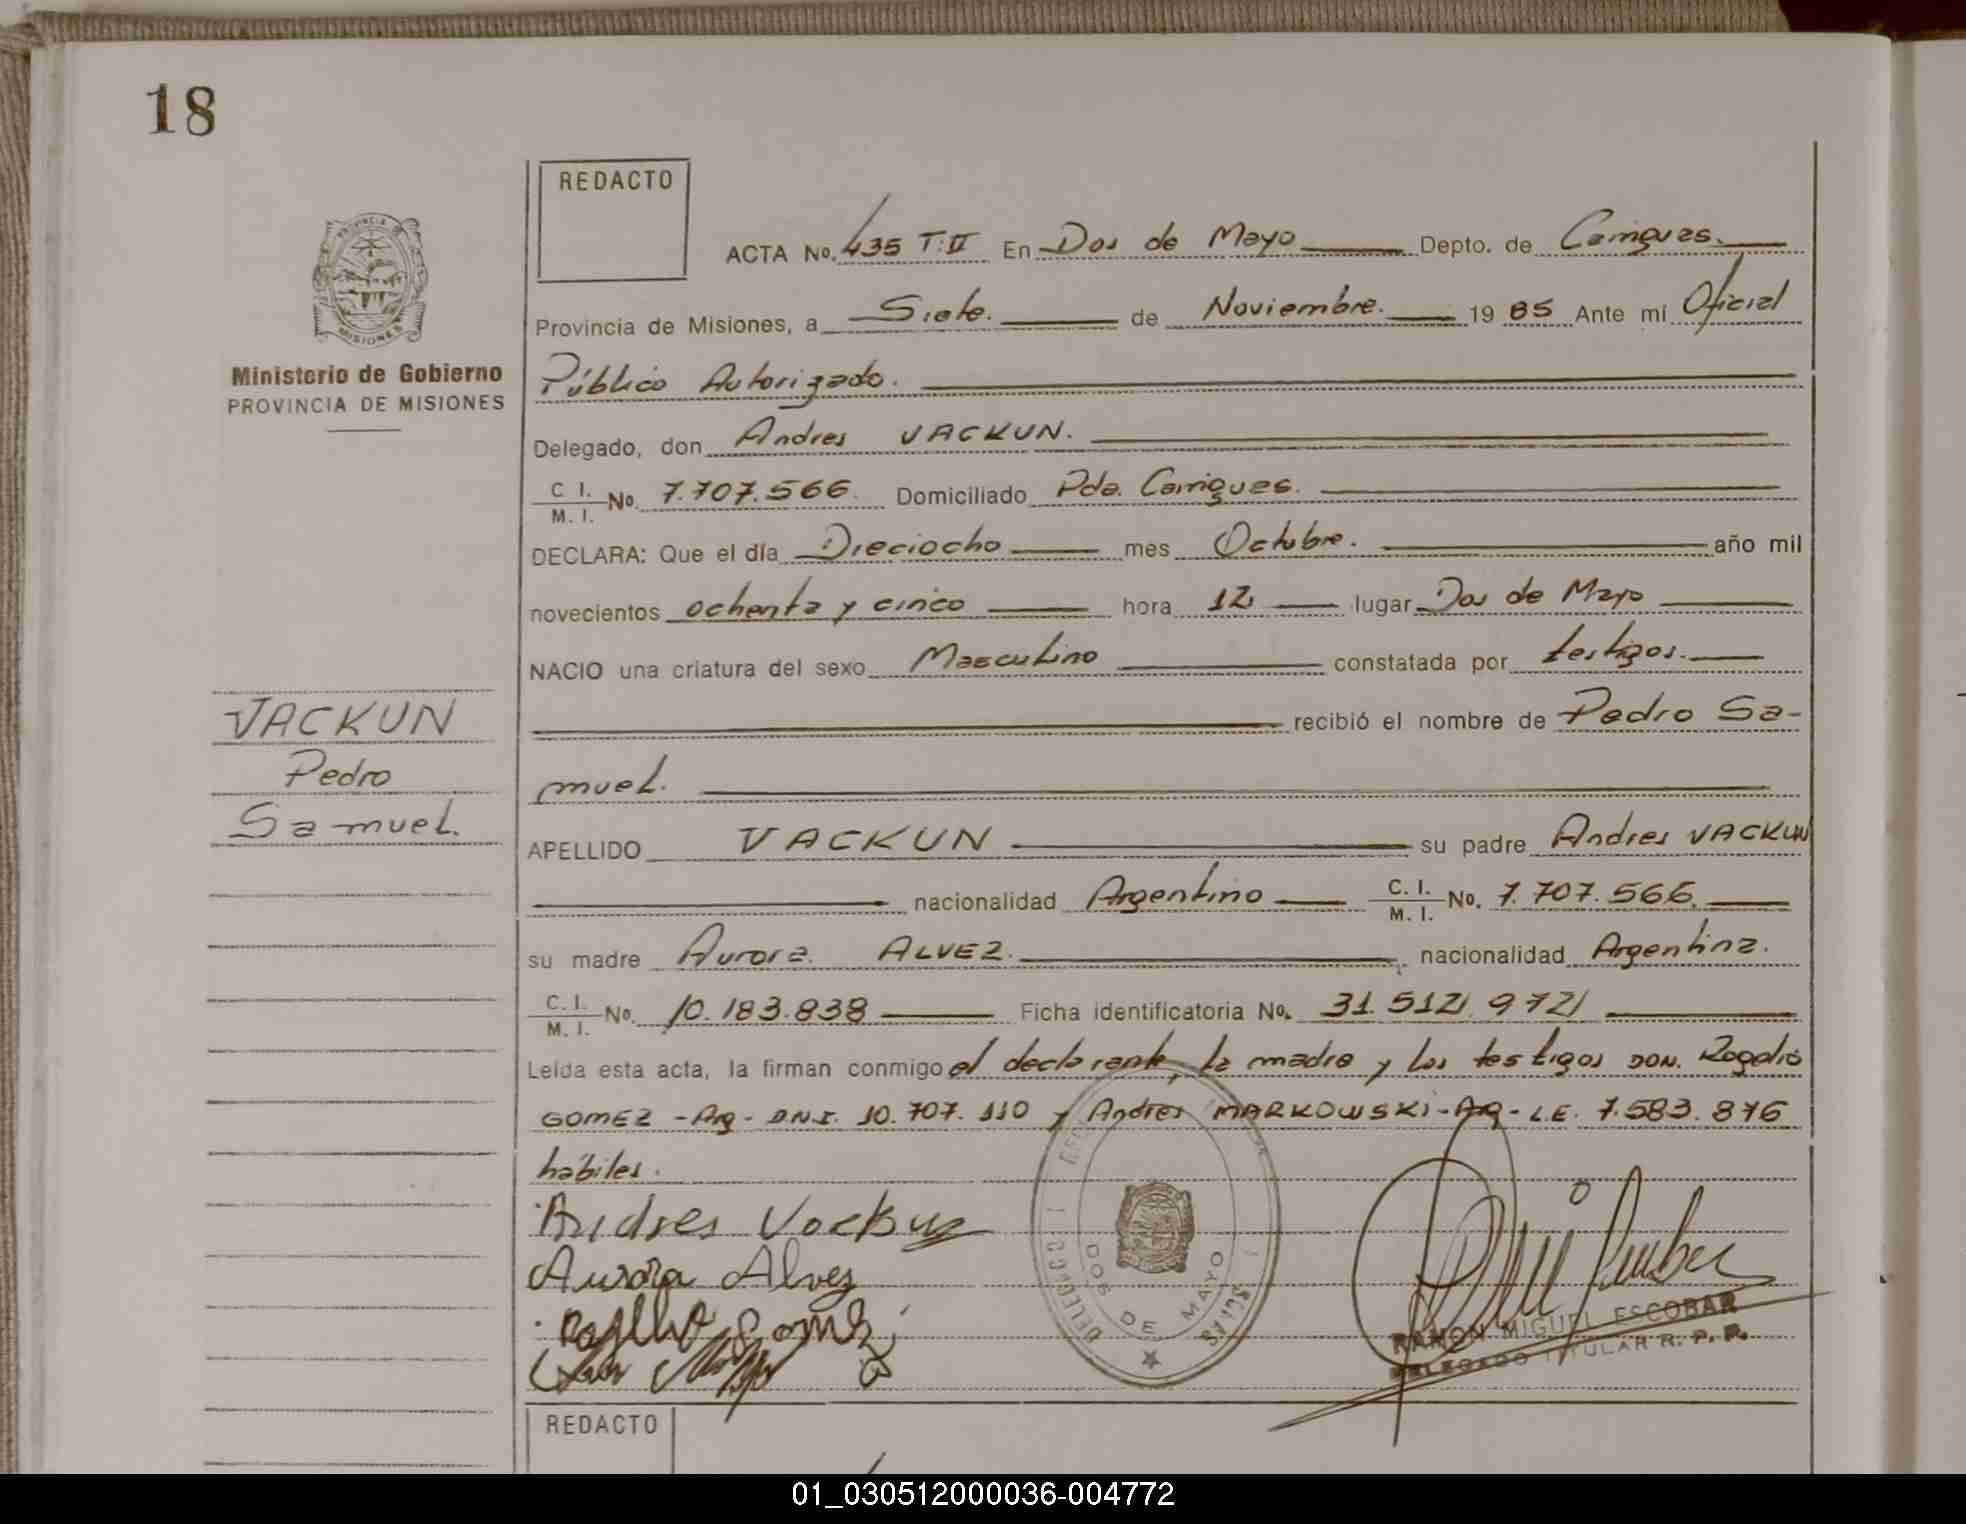 18
REDACTO
ACTA No. 435 T: II En Dos de Mayo Depto. de Caingues.
Provincia de Misiones, a Siete. de Noviembre. 1985 Ante mí Oficial
Público Autorizado.
Delegado, don Andres VACKUN.
C. I. M. I. No. 7.707.566. Domiciliado Pda. Caingues.
DECLARA: Que el día Dieciocho mes Octubre. año mil
novecientos ochenta y cinco hora 12 lugar Dos de Mayo
NACIO una criatura del sexo Masculino constatada por testigos.
recibió el nombre de Pedro Sa-
muel.
APELLIDO VACKUN su padre Andres VACKUN
nacionalidad Argentino C. I. M. I. No. 7.707.566.
su madre Aurora ALVEZ. nacionalidad Argentina.
C. I. M. I. No. 10.183.838 Ficha identificatoria No. 31.512.972
Leída esta acta, la firman conmigo el declarante, la madre y los testigos DON. Rogelio
GOMEZ - Arg - D.N.I. 10.707.110 y Andres MARKOWSKi - Arg - L.E. 7.583.876
hábiles.
Andres Vackun
Aurora Alvez
Rogelio Gomez
DOS DE MAYO
RAMON MIGUEL ESCOBAR
DELEGADO TITULAR R. P. P.
PROVINCIA DE MISIONES
Ministerio de Gobierno
PROVINCIA DE MISIONES
VACKUN
Pedro
Samuel.
REDACTO
01_030512000036-004772